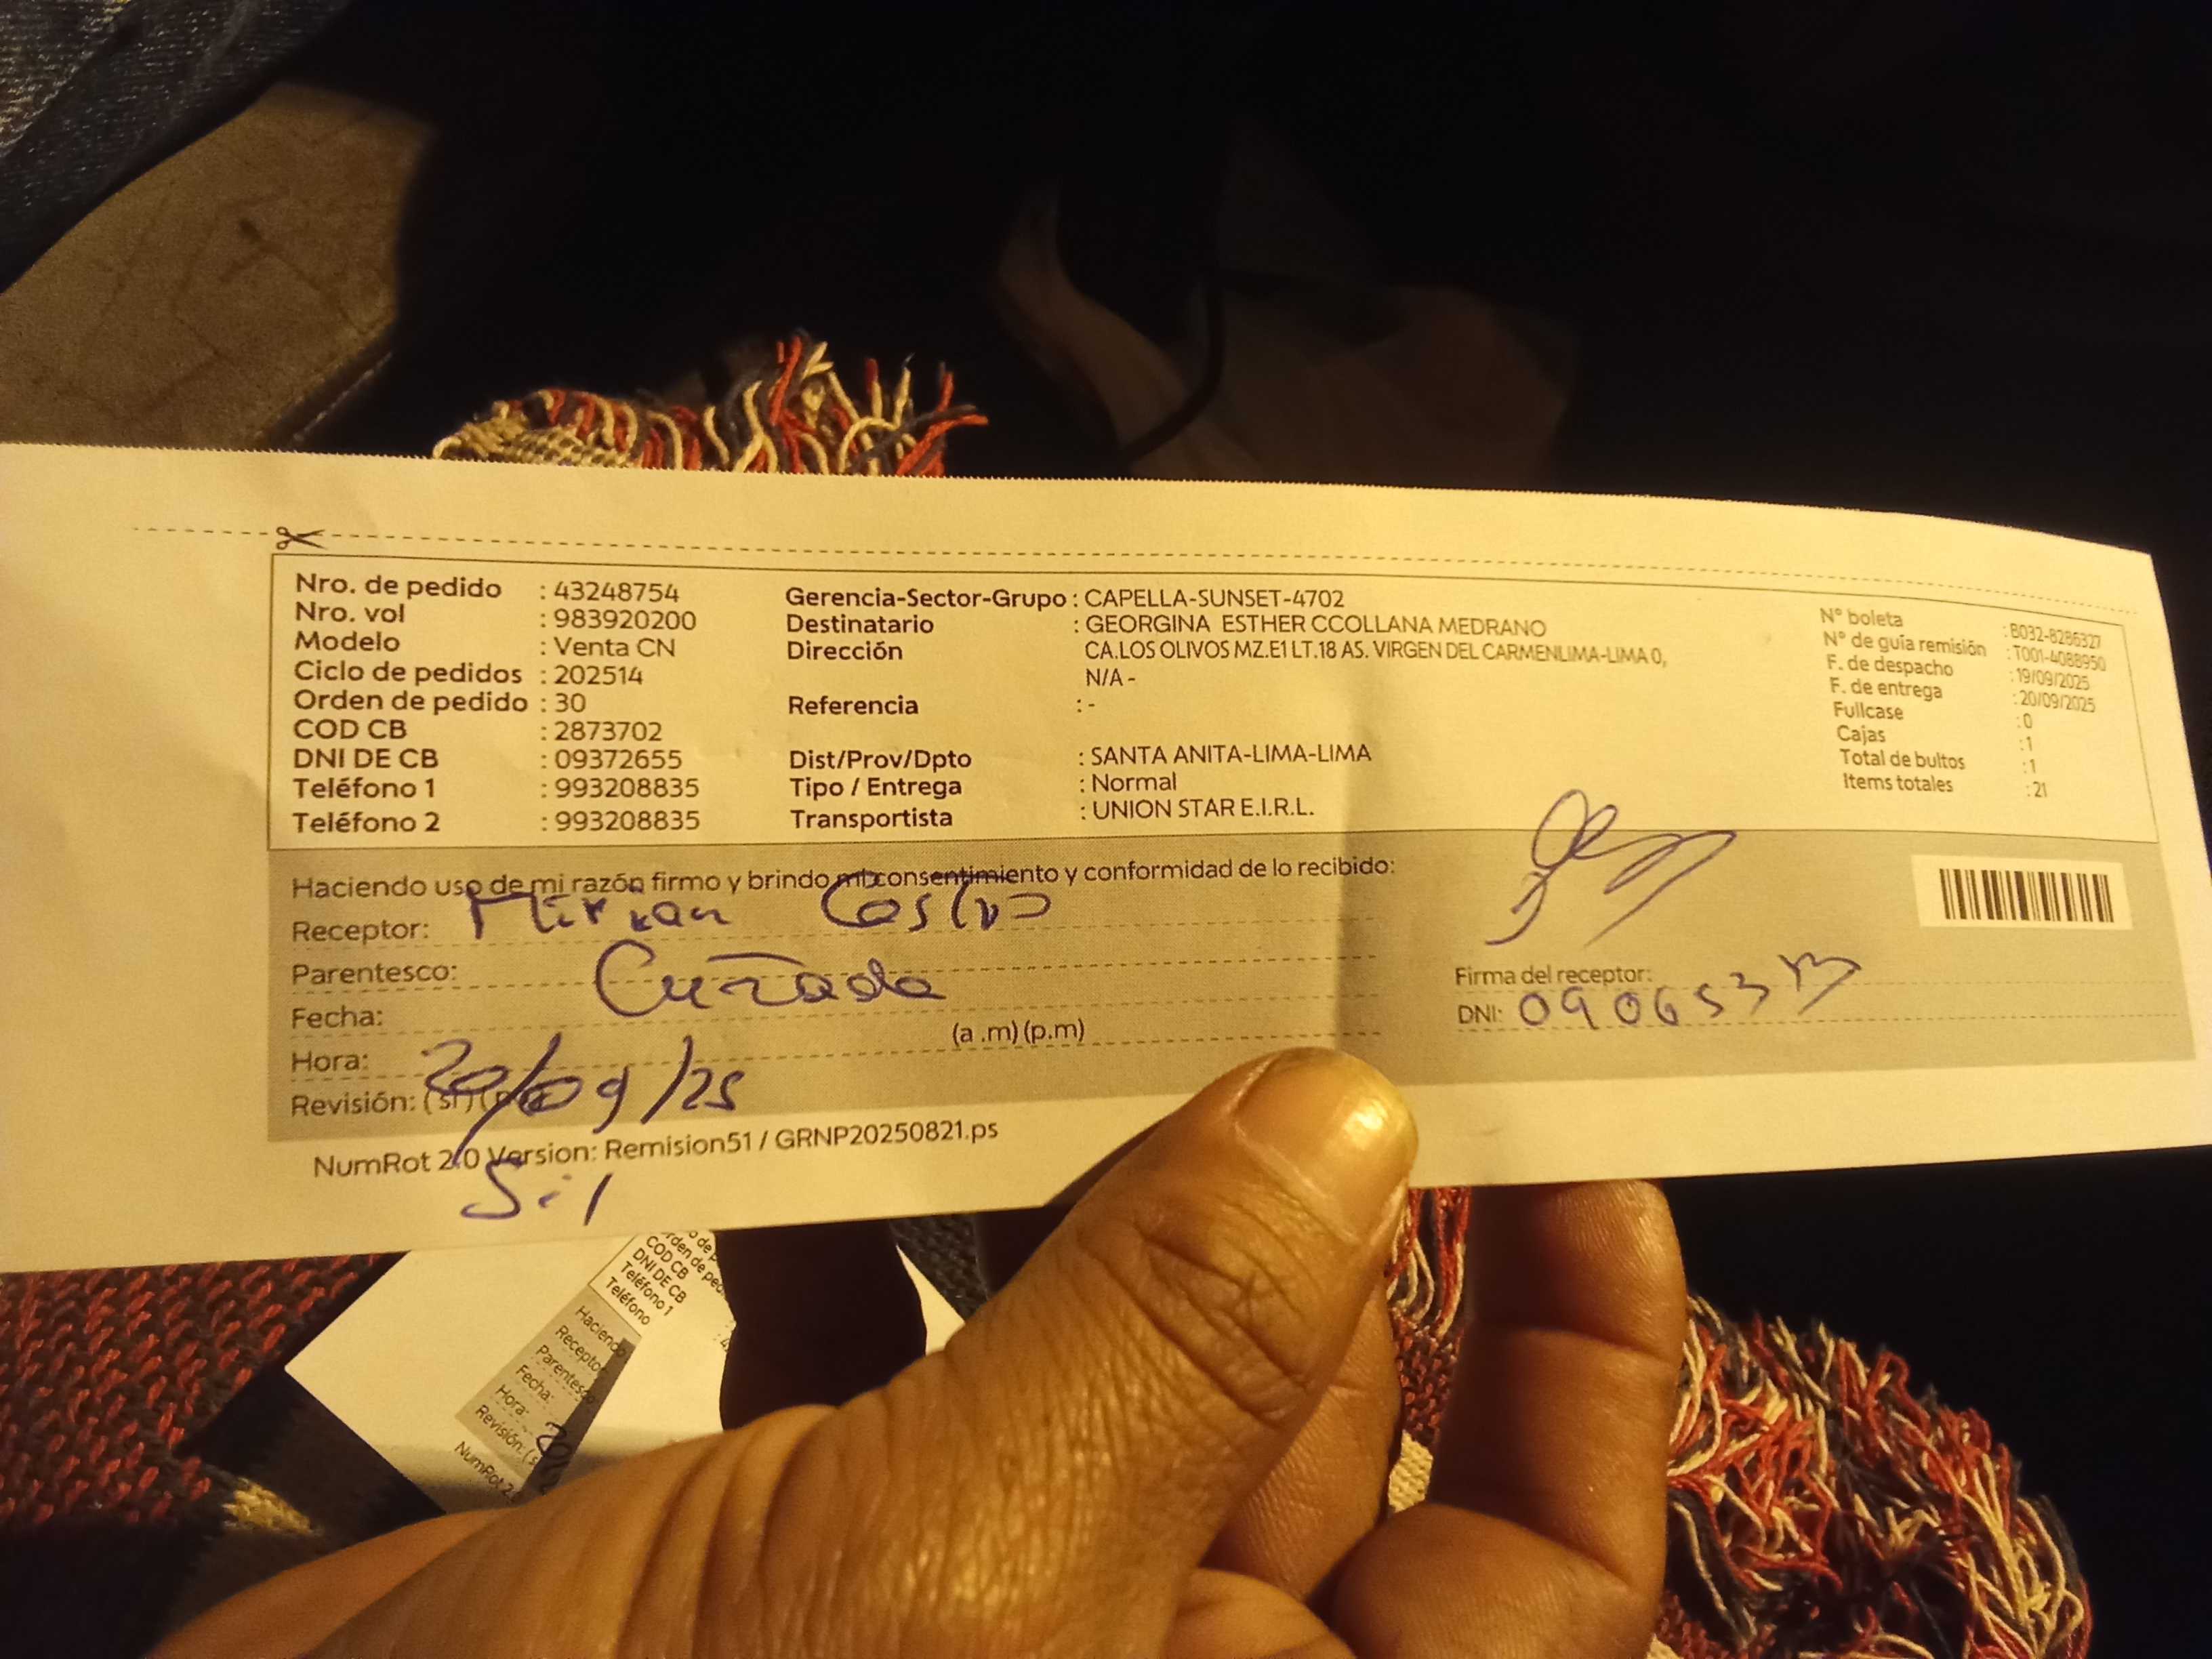 Nro. de pedido : 43248754
Nro. vol : 983920200
Modelo : Venta CN
Ciclo de pedidos : 202514
Orden de pedido : 30
COD CB : 2873702
DNI DE CB : 09372655
Teléfono 1 : 993208835
Teléfono 2 : 993208835
Gerencia-Sector-Grupo : CAPELLA-SUNSET-4702
Destinatario : GEORGINA ESTHER CCOLLANA MEDRANO
Dirección CA.LOS OLIVOS MZ.E1 LT.18 AS. VIRGEN DEL CARMENLIMA-LIMA 0,
N/A -
Referencia : -
Dist/Prov/Dpto : SANTA ANITA-LIMA-LIMA
Tipo / Entrega : Normal
Transportista : UNION STAR E.I.R.L.
N° boleta : B032-8286327
N° de guía remisión : T001-4088950
F. de despacho : 19/09/2025
F. de entrega : 20/09/2025
Fullcase : 0
Cajas : 1
Total de bultos : 1
Items totales : 21
Haciendo uso de mi razón firmo y brindo mi consentimiento y conformidad de lo recibido:
Receptor: Mirian
Parentesco: Cuñada
Fecha:
(a .m) (p.m)
Hora: 20/09/25
Revisión: (si) (
Firma del receptor:
DNI:
NumRot 2.0 Version: Remision51 / GRNP20250821.ps
rden de ped
COD CB
DNI DE CB
Teléfono 1
Teléfono
Haciendo
Receptor
Parentesco
Fecha:
Hora:
Revisión: (s
NumRot 2.